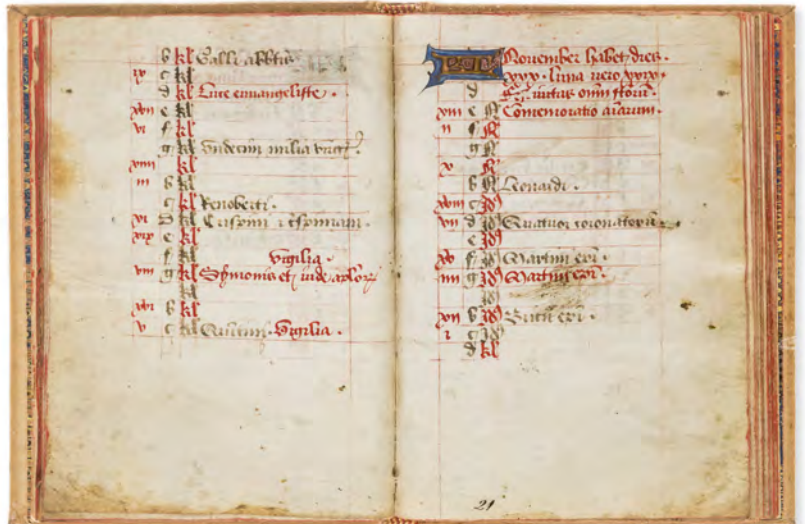 b kl Galli abbtis
iv c kl
d kl Luce euuangeliste .
xvii e kl
vi f kl
g kl Undecim milia
xiiii kl
iii b kl
c kl Renoberti .
xi D kl Crispini
xix e kl
f kl Vigilia .
viii g kl Symonis et iude
kl
xvi b kl
v c kl Quintini . Vigilia .
KL Nouember habet dies .
xxx . luna uero xxix .
d
xiii e N Comemoratio aiarum .
ii f N
g N
x N
b N Leonardi .
xviii c Id
vii d Id Quatuor coronatorum .
e Id
xv f Id Martini epi .
iiii g Id Martini epi .
Id
xii b Id Bricii epi .
i c Id
d kl
21